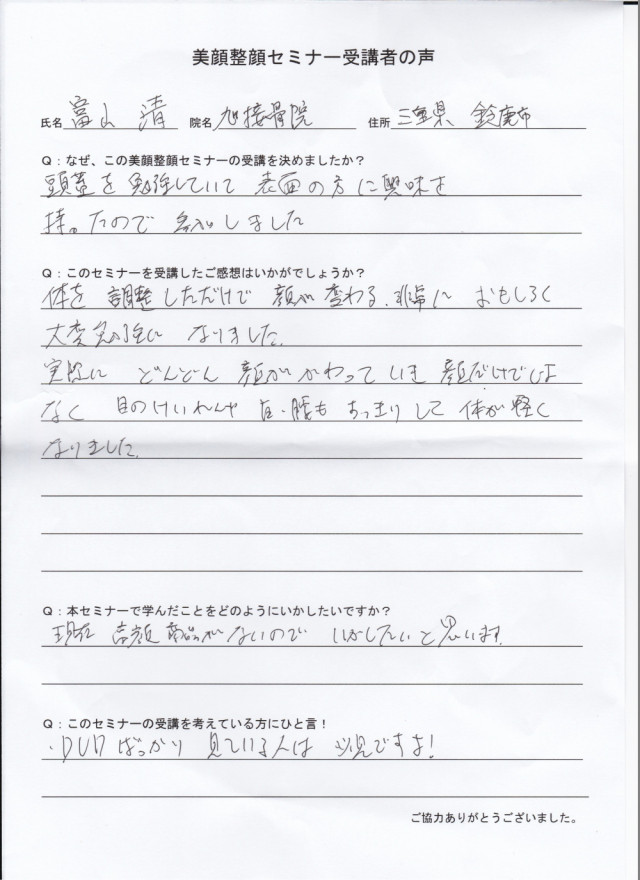 美顔整顔セミナー受講者の声
氏名 富山 清 院名 旭接骨院 住所 三重県 鈴鹿市
Q：なぜ、この美顔整顔セミナーの受講を決めましたか？
頭蓋を勉強していて 表面の方に興味を
持ったので 参加しました
Q：このセミナーを受講したご感想はいかがでしょうか？
体を 調整しただけで 顔が変わる．非常に おもしろく
大変勉強に なりました．
実際に どんどん 顔が かわって いき 顔だけでは
なく 目のけいれんや 首・腰も すっきりして 体が軽く
なりました．
Q：本セミナーで学んだことをどのようにいかしたいですか？
現在 商品がないので いかしたいと思います．
Q：このセミナーの受講を考えている方にひと言！
・DVDばっかり 見ている人は 必見ですよ！
ご協力ありがとうございました。